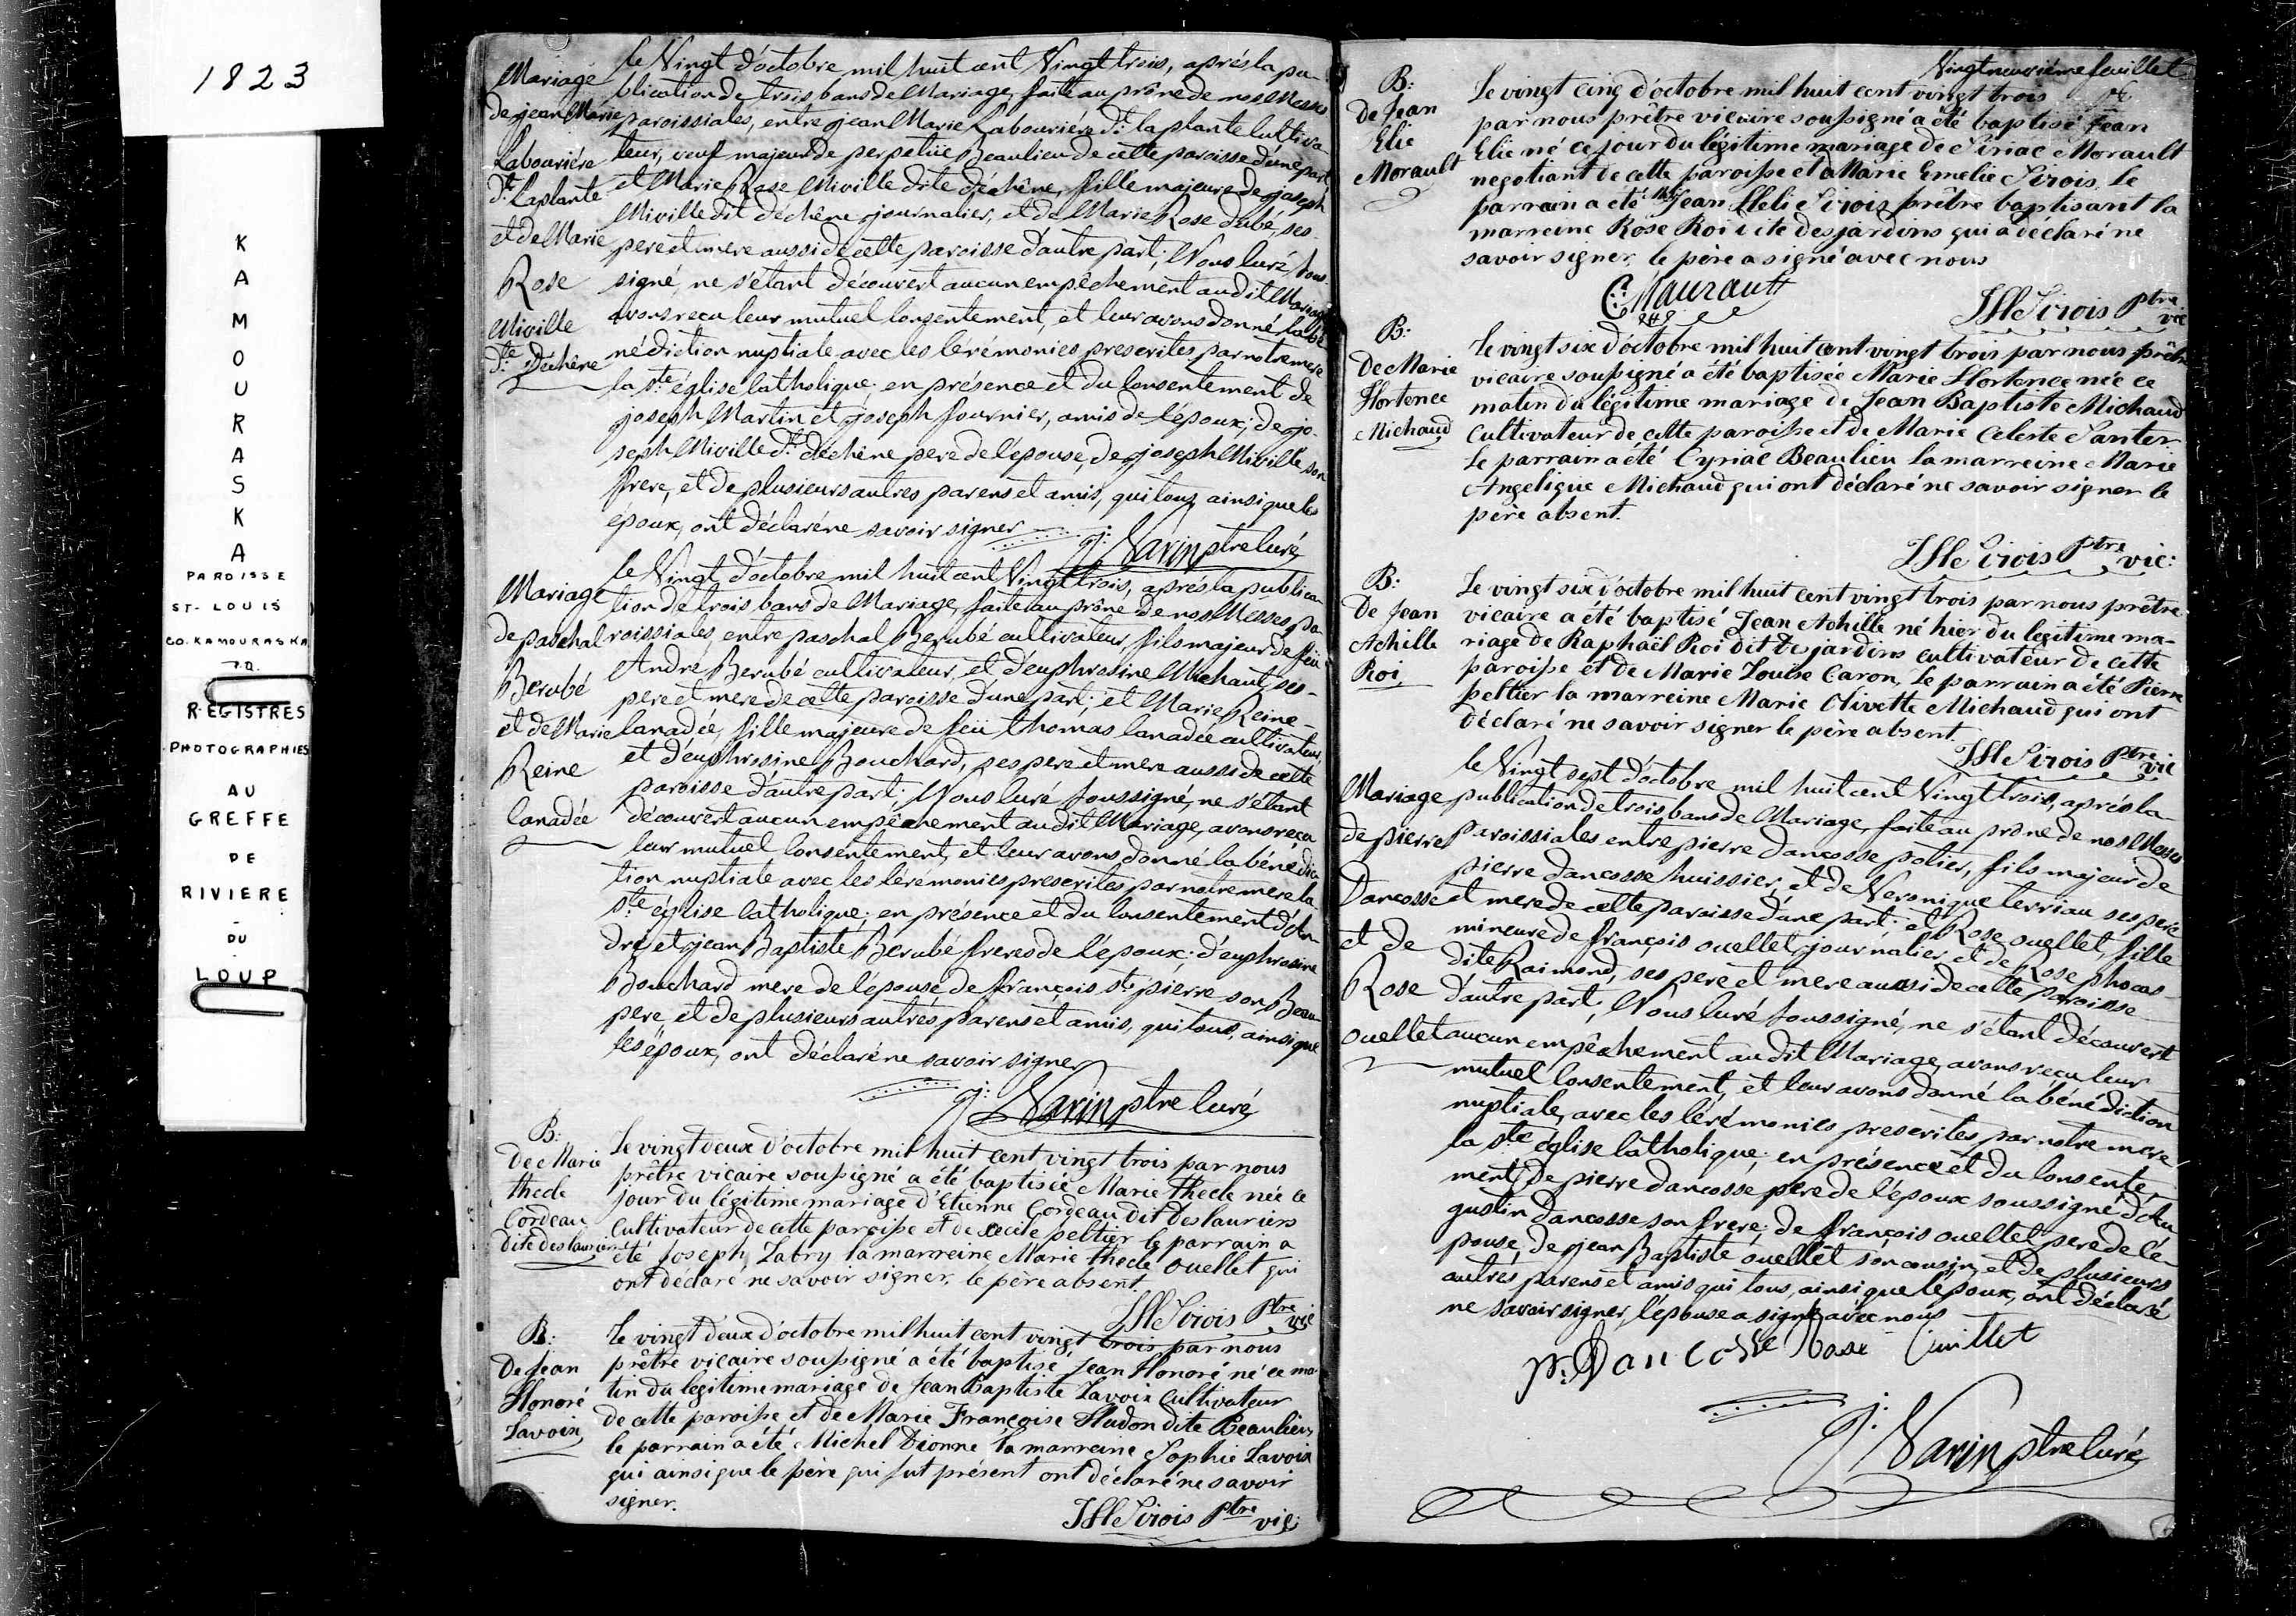 1823
KAMOURASKA
PAROISSE
ST-LOUIS
CO. KAMOURASKA
P.Q.
REGISTRES
PHOTOGRAPHIES
AU
GREFFE
DE
RIVIERE
-
DU
LOUP
Mariage
de jean Marie
Labouriére
dt. Laplante
et de Marie
Rose
Miville
dte. Déchêne
le Vingt d'octobre mil huit cent Vingt trois, aprés la pu-
blication de trois bans de Mariage, faite au prône de nos Messes
paroissiales, entre jean Marie Labouriére dt. laplante Cultiva-
teur, veuf majeur de perpetüe Beaulieu de cette paroisse d'une part
et Marie Rose Miville dite déchêne, fille majeure de joseph
Miville dit déchêne journalier, et de Marie Rose dubé, ses
pere et mere aussi de cette paroisse d'autre part; Nous Curé sous-
signé, ne s'étant découvert aucun empêchement au dit Mariage
avons reçu leur mutuel Consentement, et leur avons donné la bé-
nédiction nuptiale avec les Cérémonies prescrites par notre mere
la Ste église Catholique; en présence et du Consentement de
joseph Martin et joseph fournier, amis de l'époux; de jo-
seph Miville dt. déchêne pere de l'épouse, de joseph Miville son
frere, et de plusieurs autres parens et amis, qui tous, ainsi que les
époux, ont déclaré ne savoir signer
J: Varin ptre Curé
Mariage
de paschal
Berubé
et de Marie
Reine
Canadée
le Vingt d'octobre mil huit cent Vingt trois, aprés la publica-
tion de trois bans de Mariage, faite au prône de nos Messes pa-
roissiales, entre paschal Berubé cultivateur, fils majeur de feü
André Berubé cultivateur, et d'euphrosine Michaut, ses
pere et mere de cette paroisse d'une part; et Marie Reine
Canadée, fille majeure de feü thomas Canadée cultivateur,
et d'euphrosine Bouchard, ses pere et mere aussi de cette
paroisse d'autre part; Nous Curé soussigné, ne s'étant
découvert aucun empêchement au dit Mariage, avons reçu
leur mutuel Consentement, et leur avons donné la bénédic-
tion nuptiale avec les Cérémonies prescrites par notre mere la
Ste église Catholique; en présence et du Consentement d'An-
dré et jean Baptiste Berubé freres de l'époux; d'euphrosine
Bouchard mere de l'épouse de françois St. pierre son Beau-
pere et de plusieurs autres parens et amis, qui tous, ainsi que
les époux, ont déclaré ne savoir signer
J: Varin ptre Curé
B:
De Marie
thecle
Cordeau
dite deslauriers
Le vingt deux d'octobre mil huit cent vingt trois par nous
prêtre vicaire soussigné a été baptisée Marie thecle née ce
jour du légitime mariage d'Etienne Cordeau dit Deslauriers
Cultivateur de cette paroisse et de cecile peltier le parrain a
été Joseph Zabry la marreine Marie thecle Ouellet qui
ont déclaré ne savoir signer. le père absent.
JHe Sirois Ptre vic
B:
De Jean
Honoré
Lavoix
Le vingt deux d'octobre mil huit cent vingt trois par nous
prêtre vicaire soussigné a été baptisé Jean Honoré né ce ma-
tin du légitime mariage de Jean Baptiste Lavoix Cultivateur
de cette paroisse et de Marie Françoise Hudon dite Beaulieu,
le parrain a été Michel Dionne la marreine Sophie Lavoix
qui ainsi que le père qui fut présent ont déclaré ne savoir
signer.
JHe Sirois Ptre vic:
Vingt neuvième feuillet
B:
De Jean
Elie
Morault
Le vingt cinq d'octobre mil huit cent vingt trois
par nous prêtre vicaire soussigné a été baptisé Jean
Elie né ce jour du légitime mariage de Siriac Morault
negotiant de cette paroisse et de Marie Emelie Sirois. Le
parrain a été Jean Heli Sirois prêtre baptisant la
marreine Rose Roi dite desjardins qui a déclaré ne
savoir signer, le père a signé avec nous
C: Maurault
JHe Sirois Ptre vic
B:
De Marie
Hortence
Michaud
Le vingt six d'octobre mil huit cent vingt trois par nous prêtre
vicaire soussigné a été baptisée Marie Hortence née ce
matin du légitime mariage de Jean Baptiste Michaud
Cultivateur de cette paroisse et de Marie Celeste Santer
Le parrain a été Cyriac Beaulieu la marreine Marie
Angelique Michaud qui ont déclaré ne savoir signer le
père absent.
JHe Sirois Ptre vic:
B:
De Jean
Achille
Roi
Le vingt six d'octobre mil huit cent vingt trois par nous prêtre
vicaire a été baptisé Jean Achille né hier du légitime ma-
riage de Raphaël Roi dit Desjardins cultivateur de cette
paroisse et de Marie Louise Caron, Le parrain a été Pierre
peltier la marreine Marie Olivette Michaud qui ont
déclaré ne savoir signer le père absent
JHe Sirois Ptre vic
Mariage
de pierre
Dancosse
et de
Rose
ouellet
le Vingt sept d'octobre mil huit cent Vingt trois, aprés la
publication de trois bans de Mariage, faite au prône de nos Messes
paroissiales entre pierre dancosse potier, fils majeur de
pierre dancosse huissier, et de Veronique terriau ses pere
et mere de cette paroisse d'une part; et Rose ouellet, fille
mineure de françois ouellet journalier, et de Rose phocas
dite Raimond, ses pere et mere aussi de cette paroisse
d'autre part; Nous Curé soussigné, ne s'étant découvert
aucun empêchement au dit Mariage, avons reçu leur
mutuel Consentement, et leur avons donné la bénédiction
nuptiale, avec les Cérémonies prescrites par notre mere
la Ste église Catholique; en présence et du Consente-
ment de pierre dancosse pere de l'époux soussigné d'Au-
gustin dancosse son frere; de françois ouellet pere de l'é-
pouse, de jean Baptiste ouellet son cousin, et de plusieurs
autres parens et amis qui tous, ainsi que l'époux, ont déclaré
ne savoir signer, l'épouse a signé avec nous
p: Dancosse Rose Ouillet
J: Varin ptre Curé